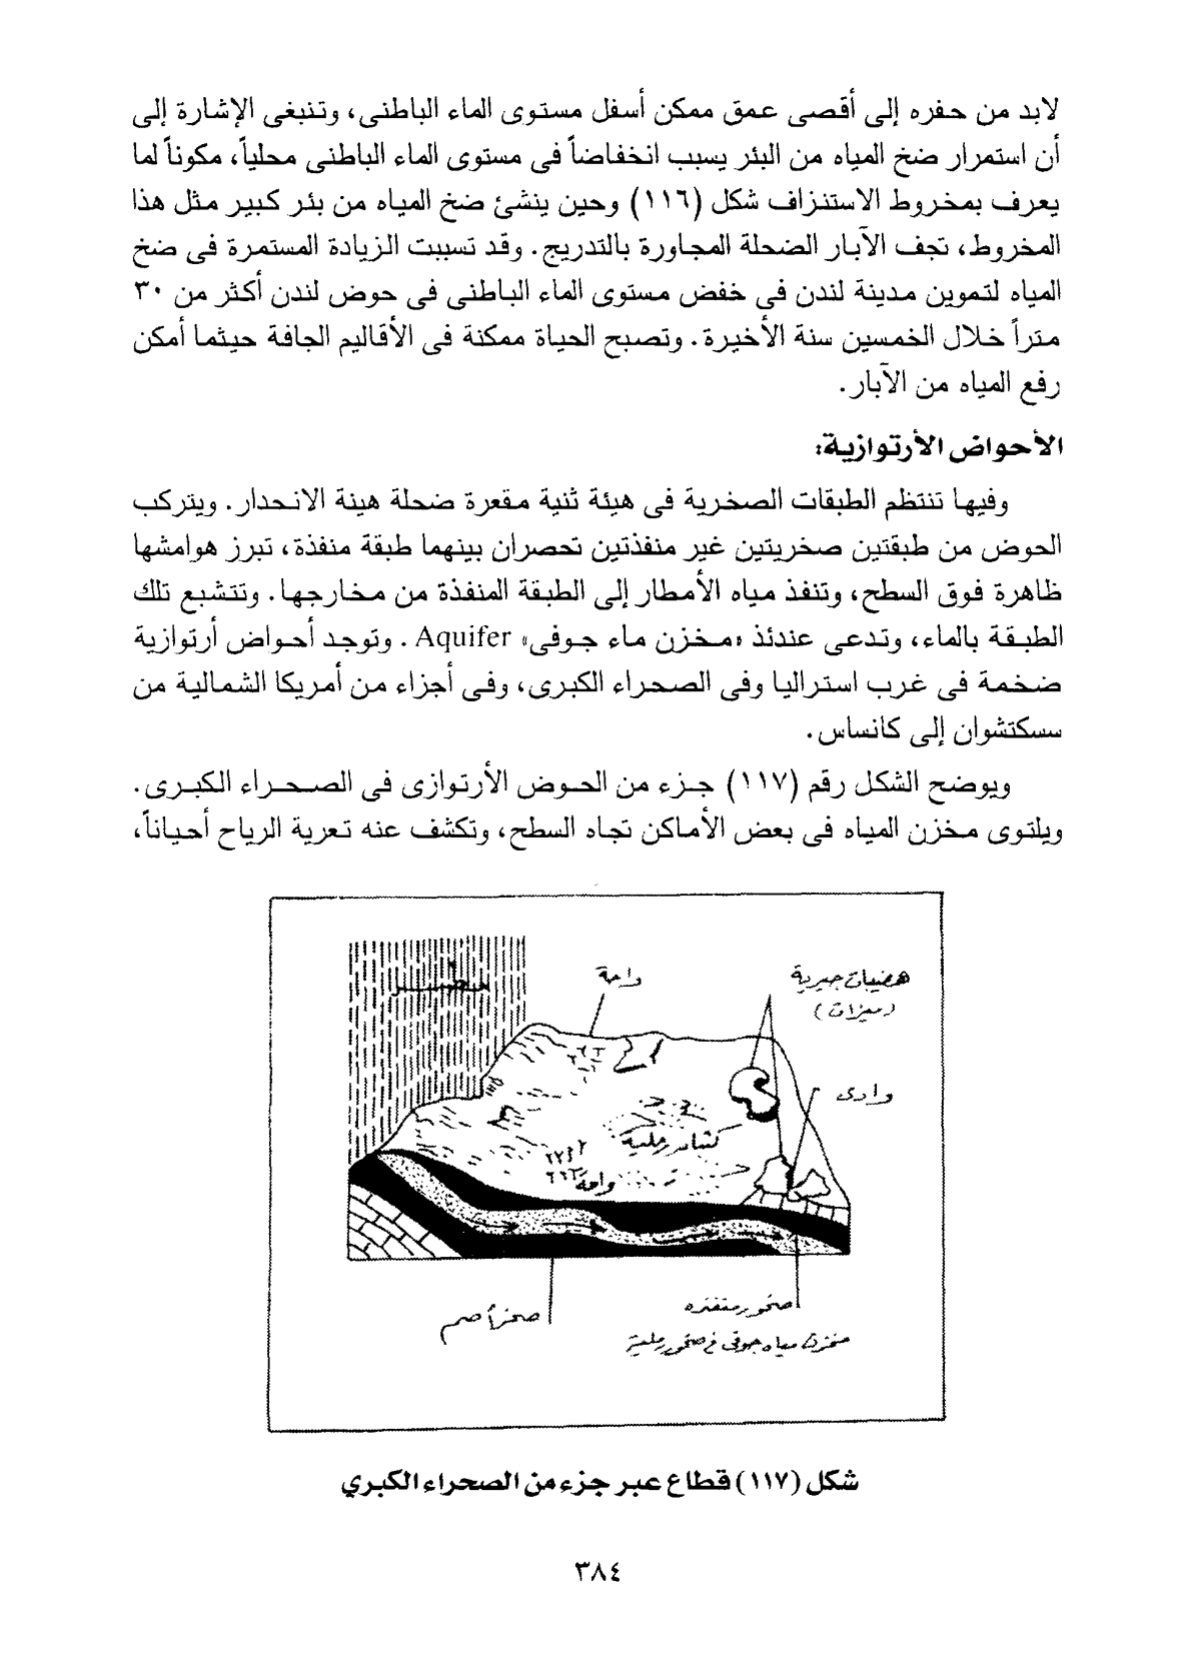 لابد من حفره إلى أقصى عمق ممكن أسفل مستوى الماء الباطنى، وتنبغى الإشارة إلى
أن استمرار ضخ المياه من البئر يسبب انخفاضاً فى مستوى الماء الباطنى محلياً، مكوناً لما
يعرف بمخروط الاستنزاف شكل (١١٦) وحين ينشئ ضخ المياه من بئر كبير مثل هذا
المخروط، تجف الآبار الضحلة المجاورة بالتدريج. وقد تسببت الزيادة المستمرة فى ضخ
المياه لتموين مدينة لندن فى خفض مستوى الماء الباطنى فى حوض لندن أكثر من ٣٠
متراً خلال الخمسين سنة الأخيرة. وتصبح الحياة ممكنة فى الأقاليم الجافة حيثما أمكن
رفع المياه من الآبار.
الأحواض الأرتوازية:
وفيها تنتظم الطبقات الصخرية فى هيئة ثنية مقعرة ضحلة هينة الانحدار. ويتركب
الحوض من طبقتين صخريتين غير منفذتين تحصران بينهما طبقة منفذة، تبرز هوامشها
ظاهرة فوق السطح، وتنفذ مياه الأمطار إلى الطبقة المنفذة من مخارجها. وتتشبع تلك
الطبقة بالماء، وتدعى عندئذ «مخزن ماء جوفى» Aquifer . وتوجد أحواض أرتوازية
ضخمة فى غرب استراليا وفى الصحراء الكبرى، وفى أجزاء من أمريكا الشمالية من
سسكتشوان إلى كانساس.
ويوضح الشكل رقم (١١٧) جزء من الحوض الأرتوازى فى الصحراء الكبرى.
ويلتوى مخزن المياه فى بعض الأماكن تجاه السطح، وتكشف عنه تعرية الرياح أحياناً،
واحة
هضيبات جيرية
(ميزات)
وادى
كثبان رملية
واحة
صخر أصم
صخور منفذه
مخزن مياه جوفى فى صخور رملية
شكل (١١٧) قطاع عبر جزء من الصحراء الكبري
٣٨٤